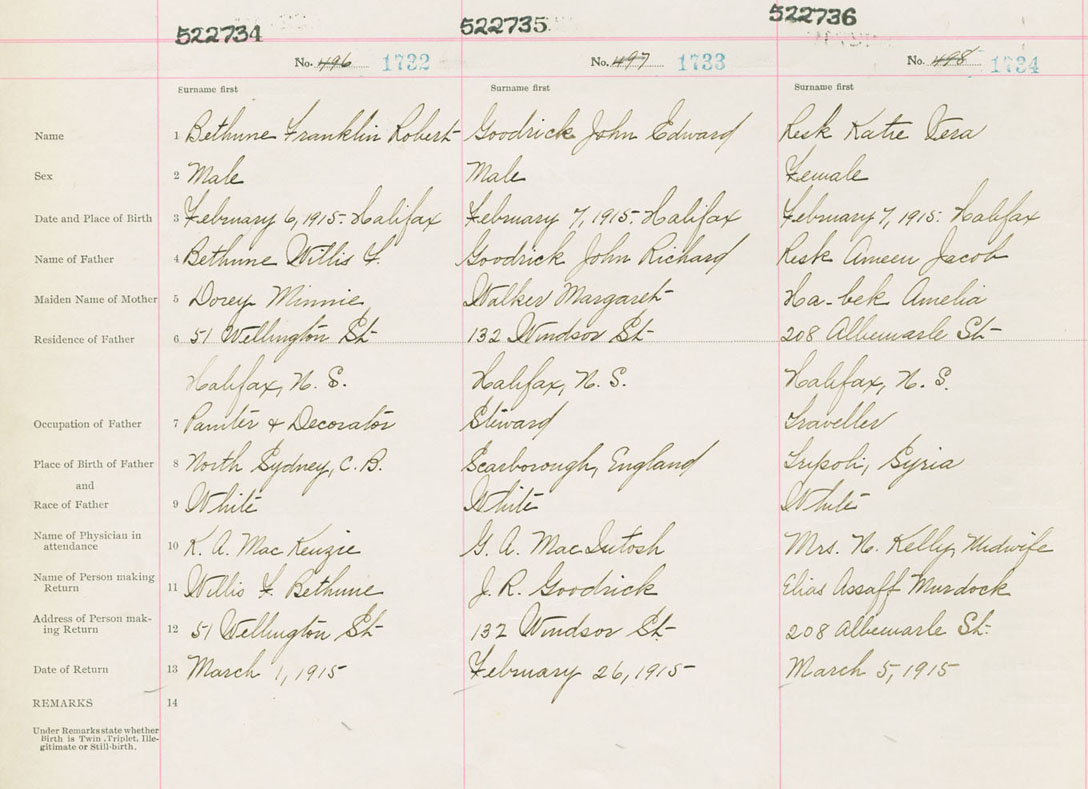 522734 522735 522736
No. 496 1732 No. 497 1733 No. 498 1734
Surname first Surname first Surname first
Name 1 Bethune Franklin Robert Goodrick John Edward Resk Katie Vera
Sex 2 Male Male Female
Date and Place of Birth 3 February 6, 1915. Halifax February 7, 1915. Halifax February 7, 1915. Halifax
Name of Father 4 Bethune Willis F. Goodrick John Richard Resk Ameen Jacob
Maiden Name of Mother 5 Dorey Minnie Walker Margaret Ha-bek Amelia
Residence of Father 6 51 Wellington St 132 Windsor St 208 Albemarle St
Halifax, N. S. Halifax, N. S. Halifax, N. S.
Occupation of Father 7 Painter & Decorator Steward Traveller
Place of Birth of Father 8 North Sydney, C. B. Scarborough, England Tripoli, Syria
and
Race of Father 9 White White White
Name of Physician in
attendance 10 K. A. MacKenzie G. A. MacIntosh Mrs. N. Kelly, Midwife
Name of Person making
Return 11 Willis F. Bethune J. R. Goodrick Elias Assaff Murdock
Address of Person mak-
ing Return 12 51 Wellington St 132 Windsor St. 208 Albemarle St.
Date of Return 13 March 1, 1915 February 26, 1915 March 5, 1915
REMARKS 14
Under Remarks state whether
Birth is Twin, Triplet, Ille-
gitimate or Still-birth.